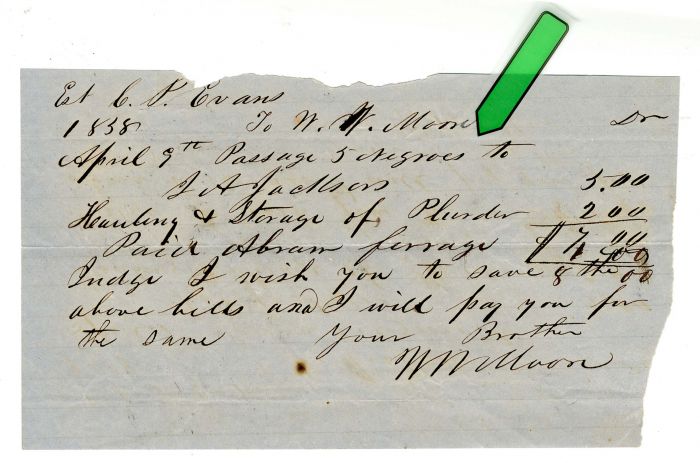 Est C. P. Evans
1838 To W. W. Moore Dr
April 9th Passage 5 Negroes to
J A Jacksons 5.00
Hauling & Storage of Plunder 2 00
Paid Abram ferrage $7,00
1 00
Judge I wish you to save the 8 00
above bills and I will pay you for
the same Your Brother
W W Moore